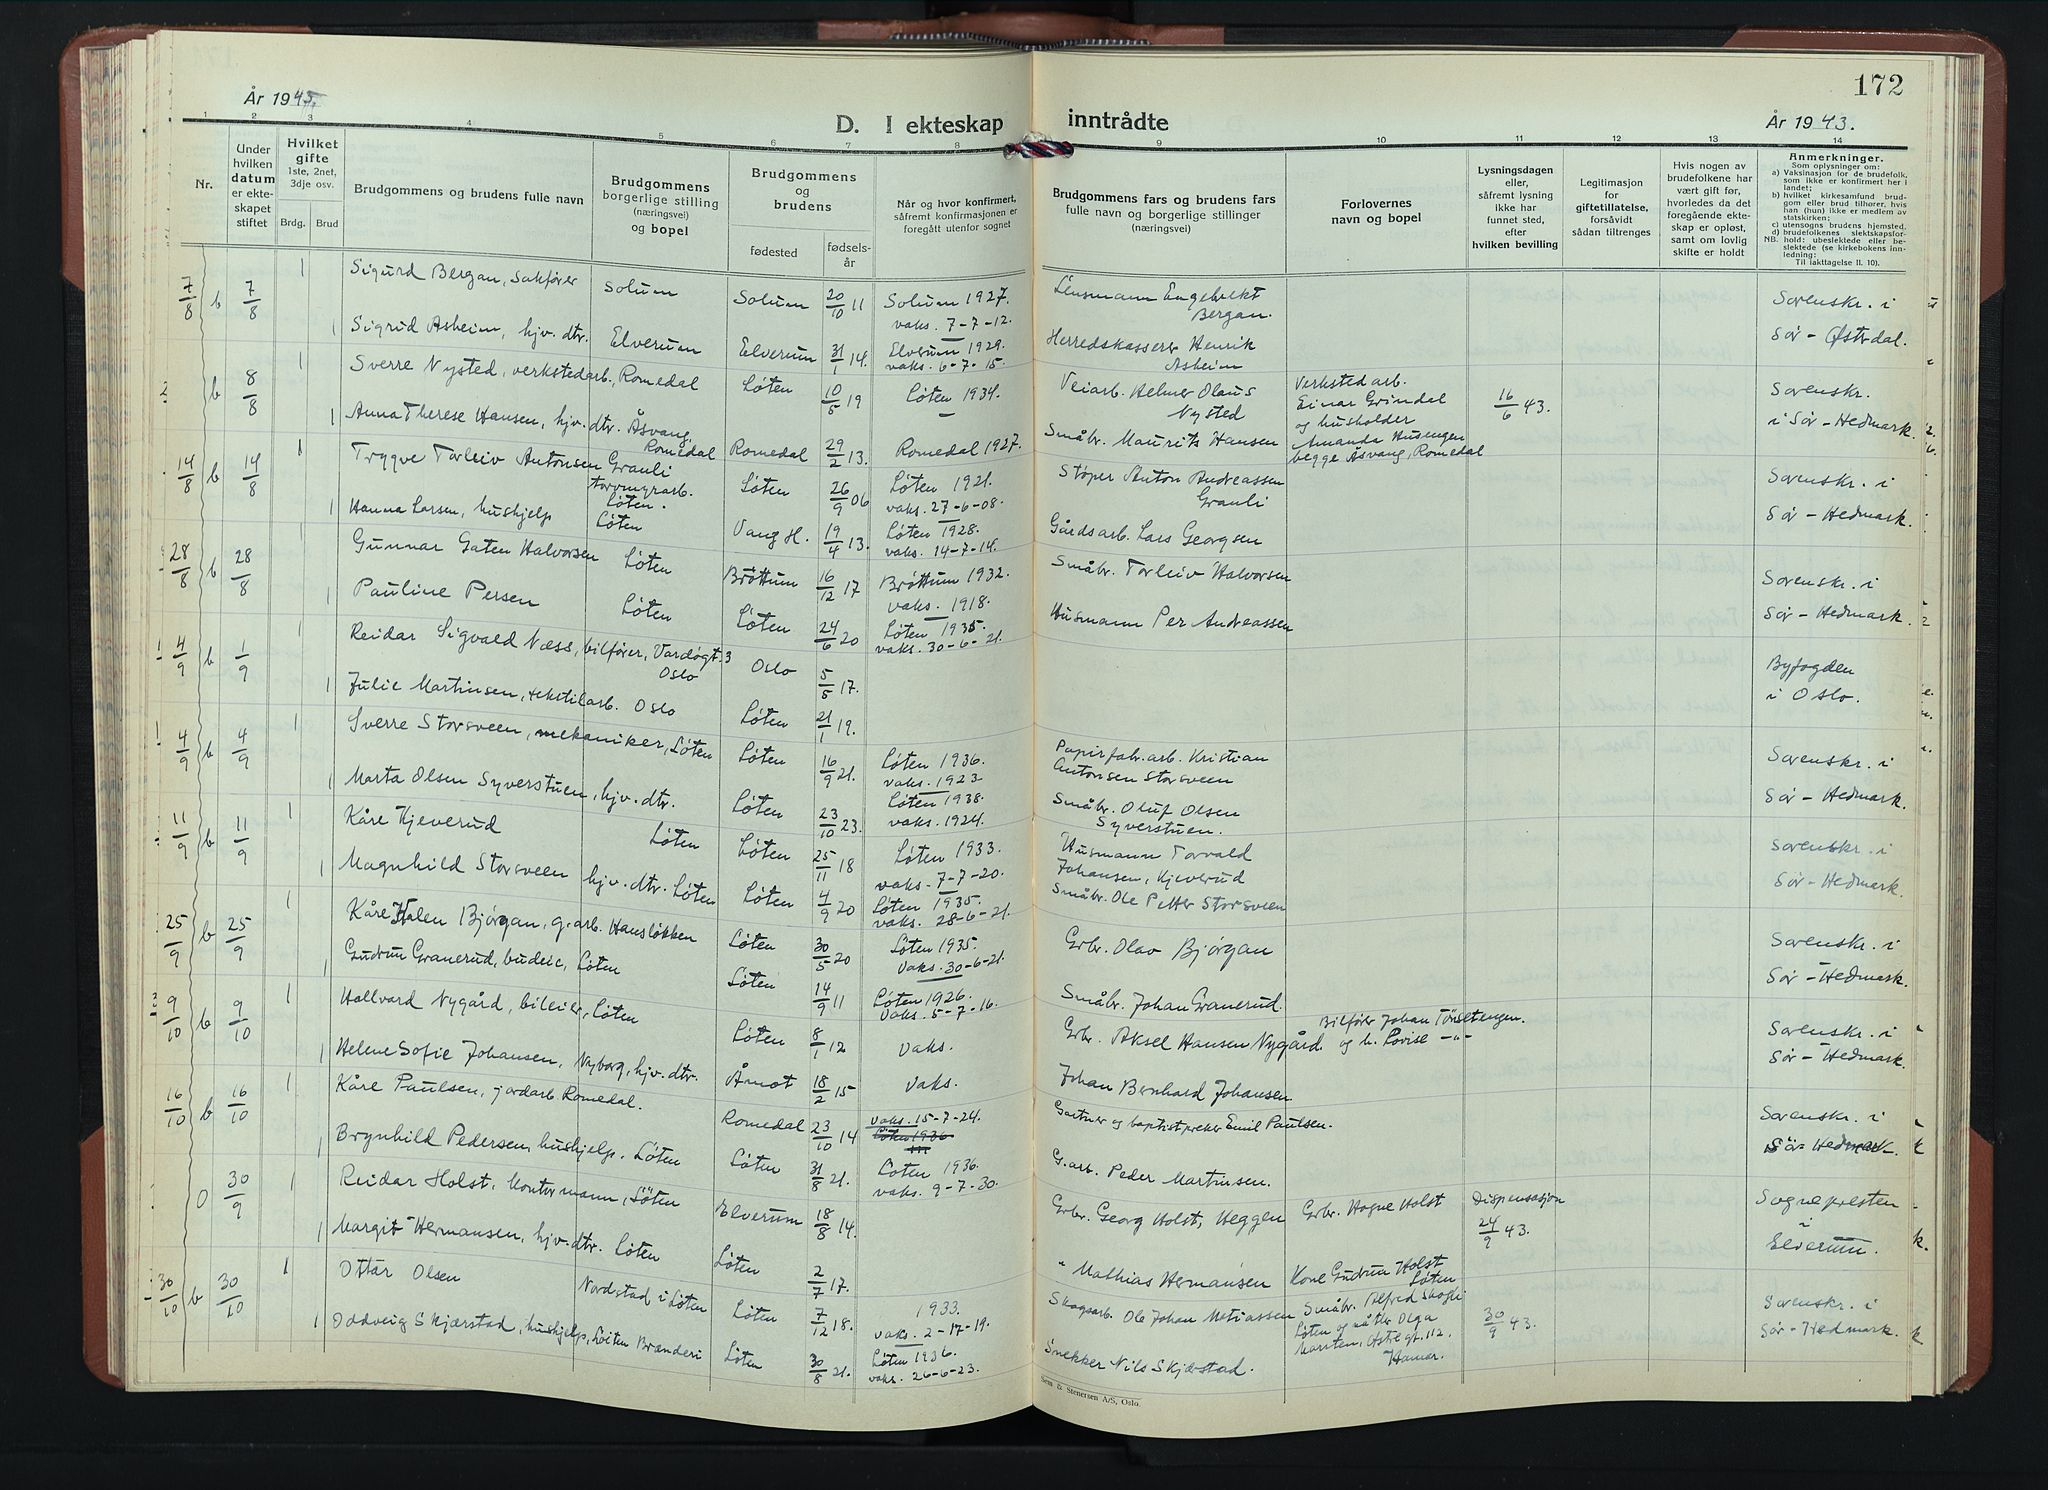 172
År 1943.
D. I ekteskap inntrådte
År 1943.
1 2 3 4 5 6 7 8 9 10 11 12 13 14
Nr.
Under hvilken datum er ekteskapet stiftet
Hvilket gifte 1ste, 2net, 3dje osv.
Brdg. Brud
Brudgommens og brudens fulle navn
Brudgommens borgerlige stilling (næringsvei) og bopel
Brudgommens og brudens
fødested
fødselsår
Når og hvor konfirmert, såfremt konfirmasjonen er foregått utenfor sognet
Brudgommens fars og brudens fars fulle navn og borgerlige stillinger (næringsvei)
Forlovernes navn og bopel
Lysningsdagen eller, såfremt lysning ikke har funnet sted, efter hvilken bevilling
Legitimasjon for giftetillatelse, forsåvidt sådan tiltrenges
Hvis nogen av brudefolkene har vært gift før, hvorledes da det foregående ekteskap er opløst, samt om lovlig skifte er holdt
Anmerkninger.
Som oplysninger om:
a) Vaksinasjon for de brudefolk, som ikke er konfirmert her i landet;
b) hvilket kirkesamfund brudgom eller brud tilhører, hvis han (hun) ikke er medlem av statskirken;
c) utensogns brudens hjemsted.
d) brudefolkenes slektskapsforhold: ubeslektede eller beslektede (se kirkebokens innledning:
NB. Til iakttagelse II. 10).
7/8 b 7/8 1 Sigurd Bergan, sakfører Solum Solum 20/10 11 Solum 1927. vaks. 7-7-12. Lensmann Engebrekt Bergan. Sorenskr. i
1 Sigrid Asheim, hjv. dtr. Elverum Elverum 31/1 14. Elverum 1929. vaks. 6-7-15. Herredskasserer Henrik Asheim Sør-Østerdal.
b 8/8 1 Sverre Nysted, verkstedarb., Romedal Løten 10/5 19 Løten 1934. Veiarb. Helmer Olaus Nysted Verkstedarb. Einar Grindal og husholder 16/6 43. Sorenskr.
1 Anna Therese Hansen, hjv. dtr. Åsvang, Romedal Romedal 29/2 13. Romedal 1927. Småbr. Maurits Hansen Amanda Husengen begge Åsvang, Romedal i Sør-Hedmark.
14/8 b 14/8 1 Trygve Torleiv Antonsen Grauli Løten. Løten 26/9 06 Løten 1921. vaks. 27-6-08. Støper Anton Andreassen Grauli Sorenskr. i
1 Hanna Larsen, hushjelp Løten Vang H. 19/4 13. Løten 1928. vaks. 14-7-14. Gårdsarb. Lars Georgsen Sør-Hedmark.
28/8 b 28/8 1 Gunnar Gaten Halvorsen Løten Brøttum 16/12 17 Brøttum 1932. vaks. 1918. Småbr. Torleiv Halvorsen Sorenskr. i
1 Pauline Persen Løten Løten 24/6 20 Løten 1935. vaks. 30-6-21. Husmann Per Andreassen Sør-Hedmark.
4/9 b 1/9 1 Reidar Sigvald Næss, bilfører, Vardøgt. 3 Oslo Oslo 5/5 17. Byfogden
1 Julie Martinsen, tekstilarb. Oslo Løten 21/1 19. i Oslo.
4/9 b 4/9 1 Sverre Storsveen, mekaniker, Løten Løten 16/9 21. Løten 1936. vaks. 1923 Papirfabr.arb. Kristian Antonsen Storsveen Sorenskr. i
1 Marta Olsen Syverstuen, hjv. dtr. Løten 23/10 23. Løten 1938. vaks. 1924. Småbr. Oluf Olsen Syverstuen. Sør-Hedmark.
11/9 b 11/9 1 Kåre Kjeverud Løten Løten 25/11 18 Løten 1933. vaks. 7-7-20. Husmann Torvald Johansen, Kjeverud Sorenskr. i
1 Magnhild Storsveen hjv. dtr. Løten Løten 4/9 20 Løten 1935. vaks. 28-6-21. Småbr. Ole Petter Storsveen Sør-Hedmark.
25/9 b 25/9 1 Kåre Halen Bjørgan, g.arb. Hansløkken Løten 30/5 20 Løten 1935. Vaks. 30-6-21. Grbr. Olav Bjørgan Sorenskr. i
1 Gudrun Granerud, budeie, Løten Løten 14/9 11 Løten 1926. Vaks. 5-7-16. Småbr. Johan Granerud. Sør-Hedmark.
9/10 b 9/10 1 Hallvard Nygård, bileier, Løten Løten 8/1 12 Vaks. Grbr. Aksel Hansen Nygård. Bilfører Johan Tønsetengen. og h. Lovise -"- Sorenskr. i
1 Helene Sofie Johansen, Nyborg, hjv. dtr. Åmot 18/2 15 Vaks. Johan Bernhard Johansen Sør-Hedmark.
16/10 b 16/10 1 Kåre Paulsen, jordarb. Romedal. Romedal 23/10 14 vaks. 15-7-24. Løten 1936 Gartner og baptistpreker Emil Paulsen. Sorenskr. i
1 Brynhild Pedersen, hushjelp. Løten Løten 31/8 21. Løten 1936. vaks. 9-7-30. G.arb. Peder Martinsen. Sør-Hedmark.
O 30/9 1 Reidar Holst, kontormann, Løten Elverum 18/8 14. Grbr. Georg Holst, Heggen Grbr. Hogne Holst Dispensasjon 24/9 43. Sognepresten i
1 Margit Hermansen, hjv. dtr. Løten Løten 2/7 17. " Mathias Hermansen Kone Gudrun Holst Løten Elverum.
30/10 b 30/10 1 Ottar Olsen Nordstad i Løten Løten 7/12 18. 1933. vaks. 2-17-19. Skogsarb. Ole Johan Matiassen Småbr. Alfred Skogli Løten og Olga 30/9 43. Sorenskr. i
1 Oddveig Skjærstad, hushjelp, Løiten Brænderi Løten 30/8 21. Løten 1936. vaks. 26-6-23. Snekker Nils Skjærstad. Marsten, Østregt. 112, Hamar. Sør-Hedmark.
Sem & Stenersen A/S, Oslo.